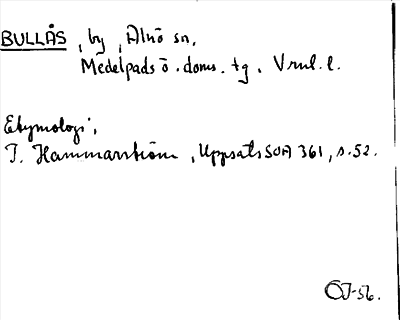 BULLÅS, by, Alnö sn,
Medelpads ö. doms. tg. Vrnl. l.
Etymologi,
T. Hammarström, Uppsats SOA 361, s. 52.
ÖJ-56.